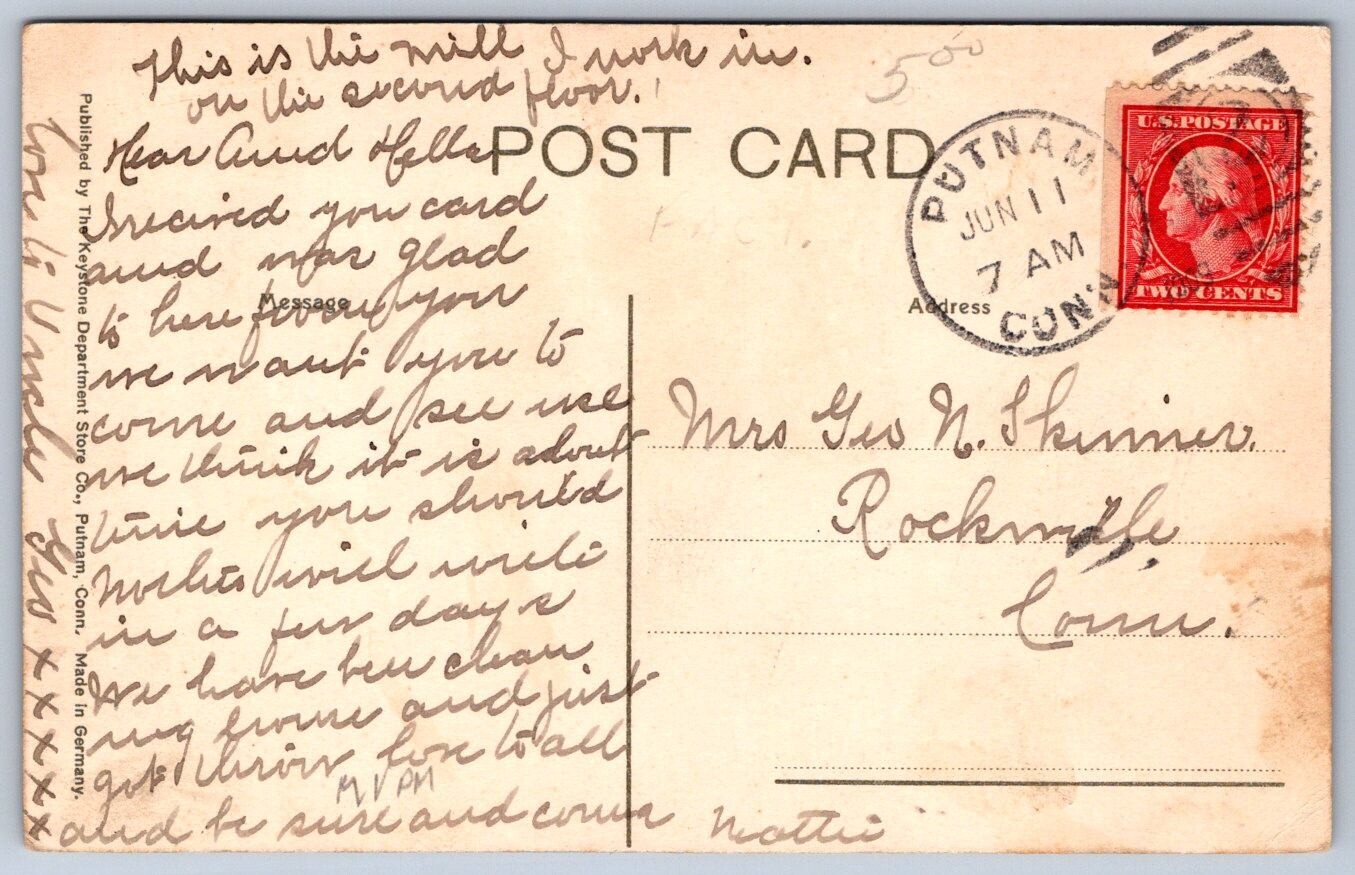 This is the mill I work in.
on the second floor.
500
Dear Aund Hella
POST CARD
PUTNAM
JUN 11
7 AM
CONN.
U.S. POSTAGE
TWO CENTS
I recived you card
and was glad
to here from you
Message
Address
we want you to
come and see use
we think it is about
time you should
Mothis will write
in a few days
We have ben clean
ing house and just
got throw love to all
M V PM
and be sure and come
Mattie
Mrs Geo N. Skinner.
Rockville
Conn.
Love to Uncle Geo x x x x x
Published by The Keystone Department Store Co., Putnam, Conn. Made in Germany.